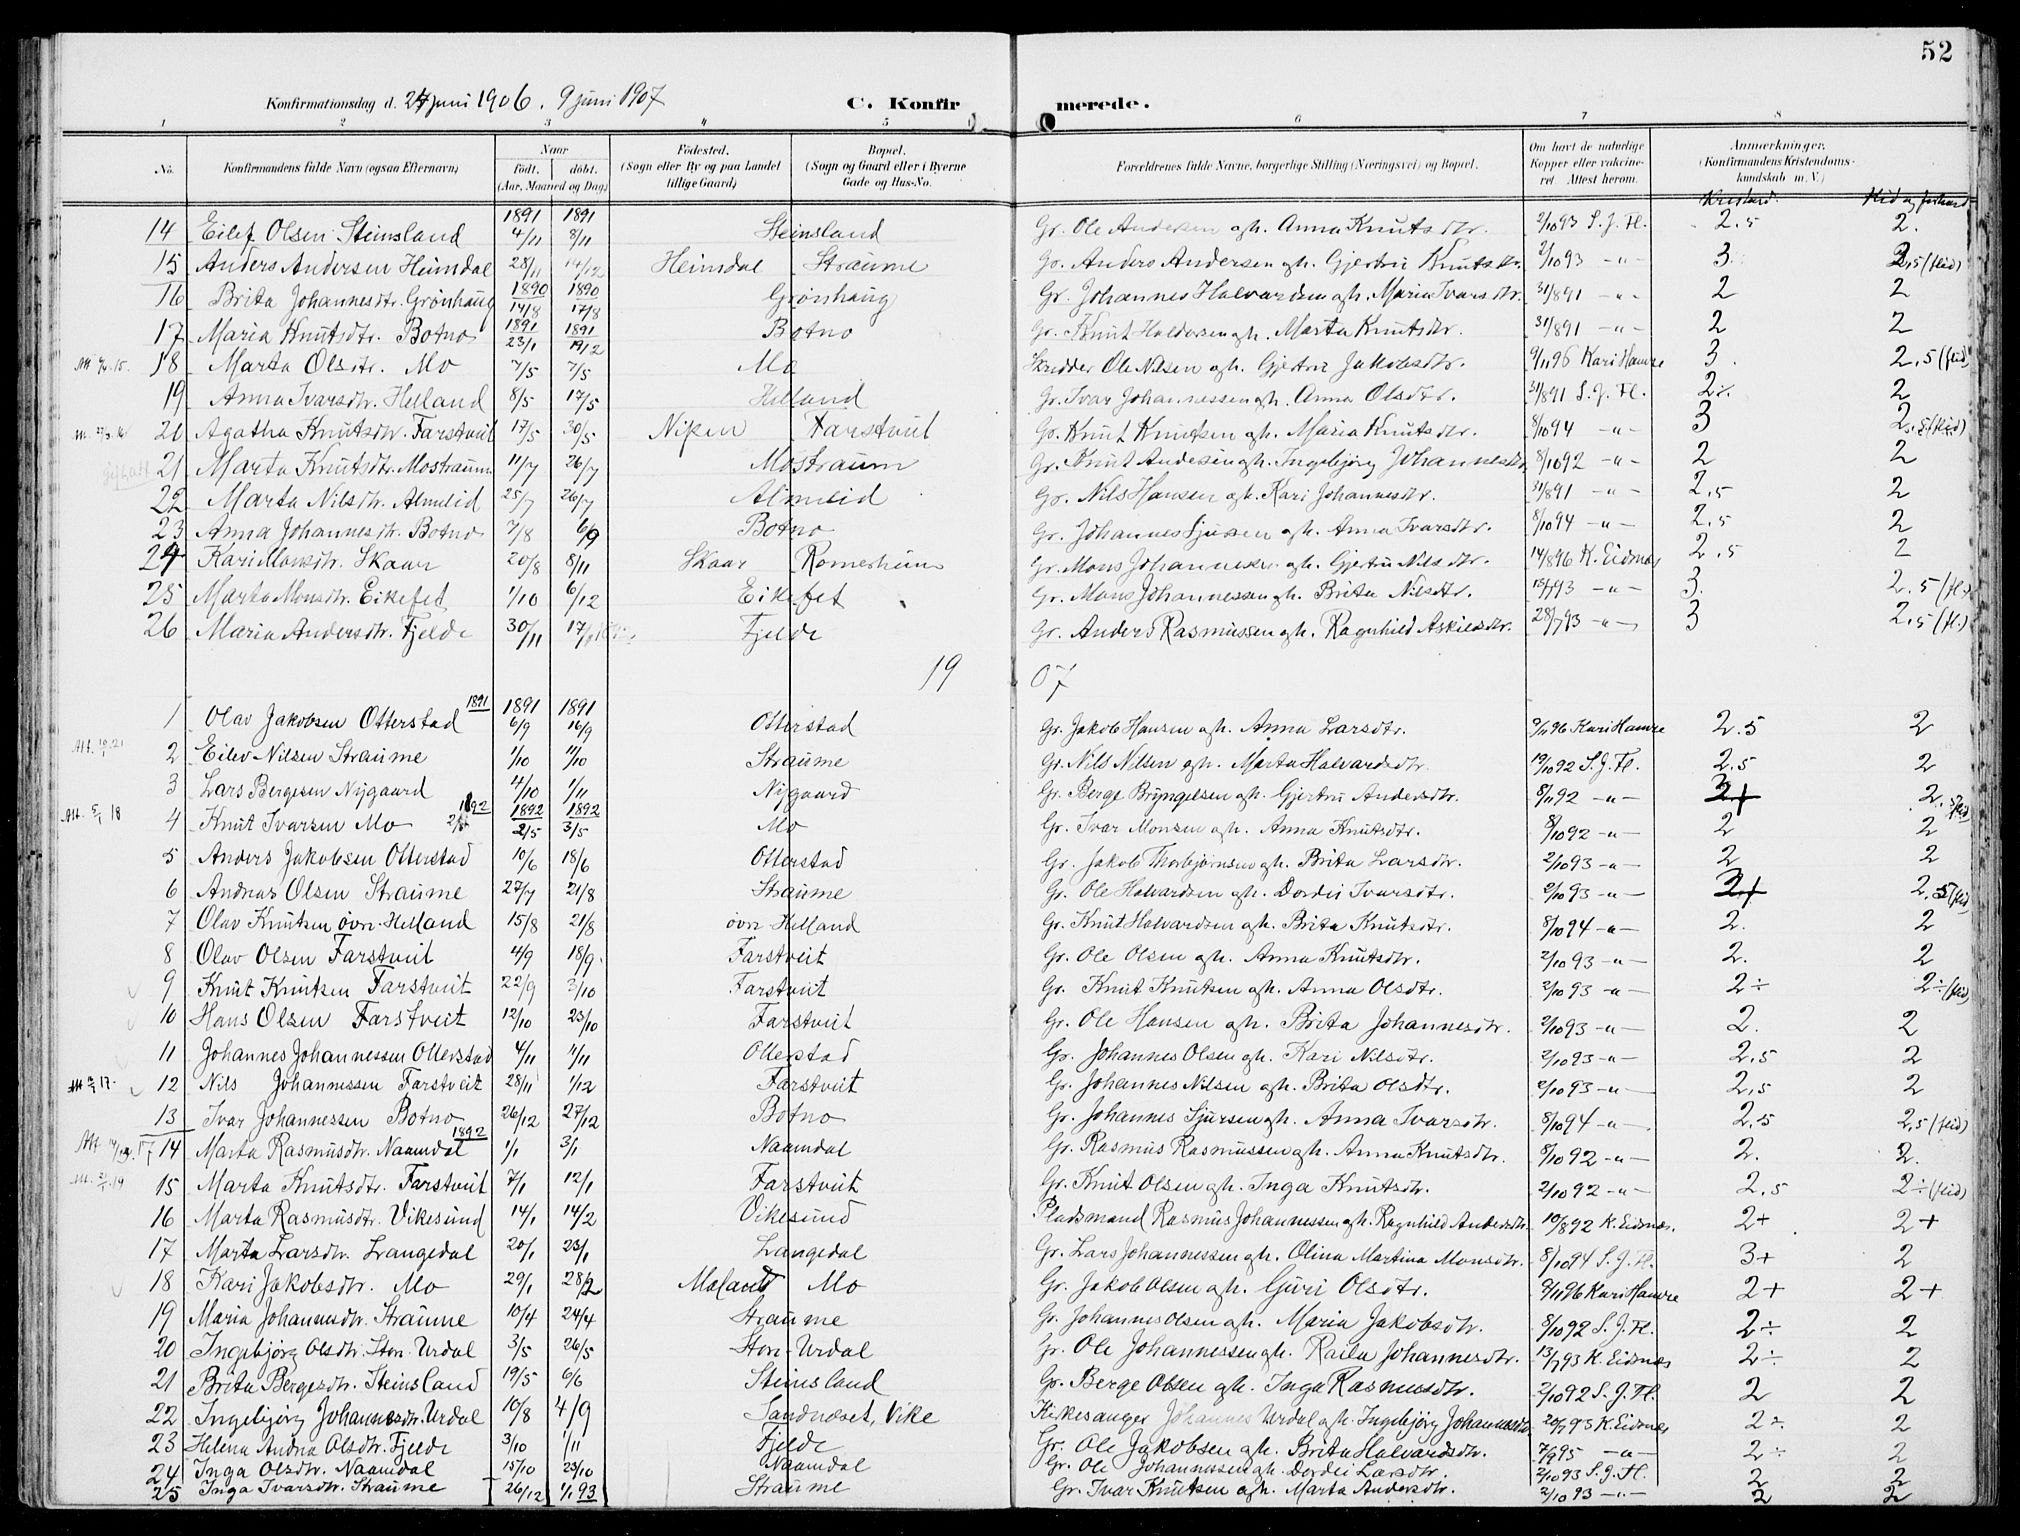 52
Konfirmationsdag d. 24 juni 1906. 9 juni 1907 C. Konfirmerede.
1 2 3 4 5 6 7 8
No. Konfirmandens fulde Navn (ogsaa Efternavn) Naar født. døbt. (Aar, Maaned og Dag) Fødested. (Sogn eller By og paa Landet tillige Gaard) Bopæl. (Sogn og Gaard eller i Byerne Gade og Hus-No. Forældrenes fulde Navne, borgerlige Stilling (Næringsvei) og Bopæl. Om havt de naturlige Kopper eller vaccineret. Attest herom. Anmærkninger. (Konfirmandens Kristendomskundskab m. V.)
14 Eilef Olsen Steinsland 1891 4/11 1891 8/11 Steinsland Gr. Ole Andersen ogh. Anna Knutsdtr. 2/10 93 S. J. Fl. 2.5 2.
15 Anders Andersen Heimdal 28/11 14/12 Heimdal Straume Gr. Anders Andersen ogh. Gjertru Knutsdtr. 2/10 93 -"- 3. 2,5 (flid)
16 Brita Johannesdtr. Grønhaug 1890 14/8 1890 17/8 Grønhaug Gr. Johannes Halvardsen ogh. Maria Ivarsdtr. 31/8 91 -"- 2 2
17 Maria Knutsdtr. Botno 1891 23/1 1891 19/2 Botno Gr. Knut Haldorsen ogh. Marta Knutsdtr. 31/8 91 -"- 2 2
18 Marta Olsdtr. Mo 7/5 7/5 Mo Skrædder Ole Nilsen ogh. Gjertru Jakobsdtr. 9/11 96 Kari Hamre 3. 2.5 (flid)
19 Anna Ivarsdtr. Helland 8/5 17/5 Helland Gr. Ivar Johannessen ogh. Anna Olsdtr. 31/8 91 S. J. Fl. 2÷ 2
20 Agatha Knutsdtr. Farstveit 17/5 30/5 Nipen Farstveit Gr. Knut Knutsen ogh. Maria Knutsdtr. 8/10 94 -"- 3 2.5 (flid)
21 Marta Knutsdtr. Mostraum 11/7 26/7 Mostraum Gr. Knut Andersen ogh. Ingebjørg Johannesdtr. 8/10 92 -"- 2 2
22 Marta Nilsdtr. Almelid 25/7 26/7 Almelid Gr. Nils Hansen ogh. Kari Johannesdtr. 31/8 91 -"- 2,5 2
23 Anna Johannesdtr. Botno 7/8 6/9 Botno Gr. Johannes Sjursen ogh. Anna Ivarsdtr. 8/10 94 -"- 2.5 2
24 Kari Monsdtr. Skaar 20/8 8/11 Skaar Romerheim Gr. Mons Johannesen ogh. Gjertru Nilsdtr. 14/8 96 K. Eidnes 2.5 2
25 Marta Monsdtr. Eikefet 1/10 6/12 Eikefet Gr. Mons Johannessen ogh. Brita Nilsdtr. 15/7 93 -"- 3. 2.5 (fl.)
26 Maria Andersdtr. Fjelde 30/11 17/ Fjelde Gr. Anders Rasmussen ogh. Ragnhild Askildsdtr. 28/7 93 -"- 3 2,5 (fl.)
19 07
1 Olav Jakobsen Otterstad 1891 1891 6/9 1891 16/9 Otterstad Gr. Jakob Hansen ogh. Anna Larsdtr. 9/11 96 Kari Hamre 2.5 2
2 Eilev Nilsen Straume 1/10 11/10 Straume Gr. Nils Nilsen ogh. Marta Halvardsdtr. 19/10 92 S. J. Fl. 2.5 2
3 Lars Bergesen Nygaard 4/10 1/11 Nygaard Gr. Berge Bryngelsen ogh. Gjertru Andersdtr. 8/11 92 -"- 2+ 2.÷ flid
Att. 5/1 18 4 Knut Ivarsen Mo 1892 2/5 1892 2/5 1892 3/5 Mo Gr. Ivar Monsen ogh. Anna Knutsdtr. 8/10 92 -"- 2 2
5 Anders Jakobsen Otterstad 10/6 18/6 Otterstad Gr. Jakob Thorbjørnsen ogh. Brita Larsdtr. 2/10 93 -"- 2 2
6 Andreas Olsen Straume 27/7 21/8 Straume Gr. Ole Halvardsen ogh. Dordei Ivarsdtr. 2/10 93 -"- 2+ 2.5 (flid)
7 Olav Knutsen øvr. Helland 15/8 21/8 øvr. Helland Gr. Knut Halvardsen ogh. Brita Knutsdtr. 8/10 94 -"- 2. 2
8 Olav Olsen Farstveit 4/9 18/9 Farstveit Gr. Ole Olsen ogh. Anna Knutsdtr. 2/10 93 -"- 2. 2
9 Knut Knutsen Farstveit 22/9 3/10 Farstveit Gr. Knut Knutsen ogh. Anna Olsdtr. 2/10 93 -"- 2÷ 2÷ (flid)
10 Hans Olsen Farstveit 12/10 23/10 Farstveit Gr. Ole Hansen ogh. Brita Johannesdtr. 2/10 93 -"- 2. 2
11 Johannes Johannessen Otterstad 4/11 11/11 Otterstad Gr. Johannes Olsen ogh. Kari Nilsdtr. 2/10 93 -"- 2,5 2
12 Nils Johannessen Farstveit 28/11 1/12 Farstveit Gr. Johannes Nilsen ogh. Brita Olsdtr. 2/10 93 -"- 2,5 2
13 Ivar Johannessen Botno 26/12 27/12 Botno Gr. Johannes Sjursen ogh. Anna Ivarsdtr. 8/10 94 -"- 2,5 2,5 (flid)
14 Marta Rasmusdtr. Naamdal 1892 1/1 3/1 Naamdal Gr. Rasmus Rasmussen ogh. Anna Knutsdtr. 8/10 92 -"- 2. 2.
15 Marta Knutsdtr. Farstveit 7/1 12/1 Farstveit Gr. Knut Olsen ogh. Inga Knutsdtr. 2/10 92 -"- 2,5 2÷ (flid)
16 Marta Rasmusdtr. Vikesund 14/1 14/2 Vikesund Pladsmand Rasmus Johannessen ogh. Ragnhild Andersdtr. 10/8 92 K. Eidnes 2+ 2+
17 Marta Larsdtr. Langedal 20/1 23/1 Langedal Gr. Lars Johannessen ogh. Olina Martina Monsdtr. 8/10 94 S. J. Fl. 3+ 2
18 Kari Jakobsdtr. Mo 29/1 28/2 Moland Mo Gr. Jakob Olsen ogh. Guri Olsdtr. 9/11 96 Kari Hamre 2+ 2+
19 Maria Johannesdtr. Straume 10/4 24/4 Straume Gr. Johannes Olsen ogh. Maria Jakobsdtr. 8/10 92 S. J. Fl. 2÷ 2
20 Ingebjørg Olsdtr. Stor-Urdal 3/5 26/5 Stor-Urdal Gr. Ole Johannessen ogh. Raila Johannesdtr. 13/7 93 K. Eidnes 2÷ 2
21 Brita Bergesdtr. Steinsland 19/5 6/6 Steinsland Gr. Berge Olsen ogh. Inga Rasmusdtr. 2/10 92 S. J. Fl. 2 2
22 Ingebjørg Johannesdtr. Urdal 10/8 4/9 Sandnæset, Vike Kirkesanger Johannes Urdal ogh. Ingebjørg Johannesdtr. 20/7 93 K. Eidnes 2÷ 2
23 Helena Andrea Olsdtr. Fjelde 3/10 1/11 Fjelde Gr. Ole Jakobsen ogh. Brita Halvardsdtr. 7/9 95 -"- 2÷ 2
24 Inga Olsdtr. Naamdal 15/10 23/10 Naamdal Gr. Ole Johannessen ogh. Dordei Larsdtr. 2/10 93 S. J. Fl. 2 2
25 Inga Ivarsdtr. Straume 26/12 1/1 93 Straume Gr. Ivar Knutsen ogh. Marta Andersdtr. 2/10 93 -"- 2 2